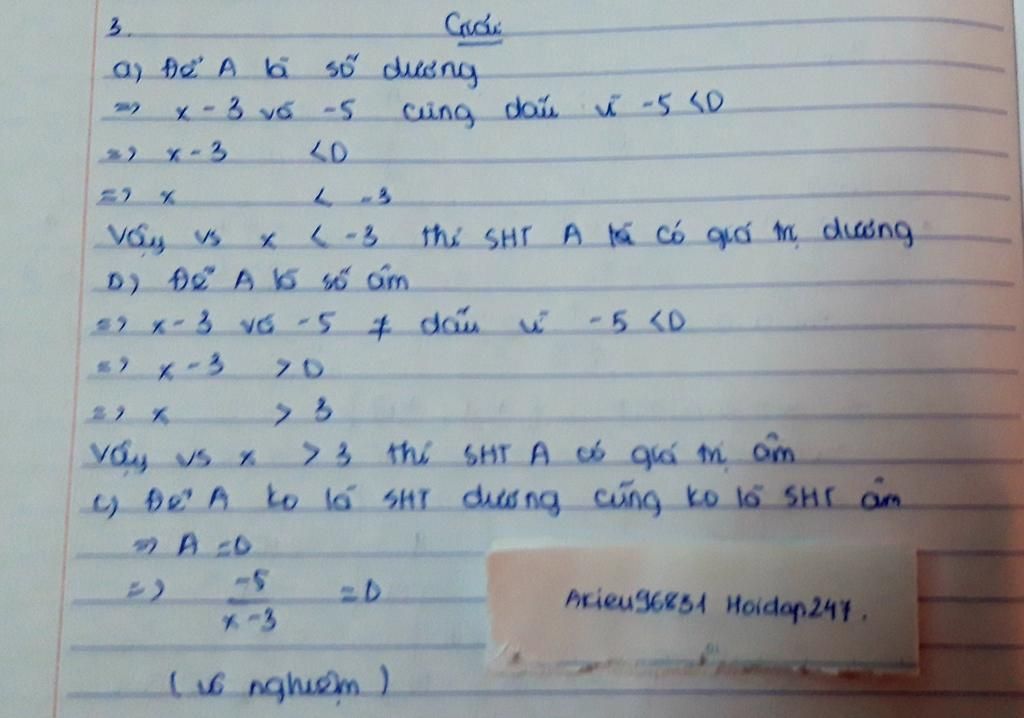 3. Giải
a) Để A là số dương
=> x - 3 và -5 cùng dấu vì -5 < 0
=> x - 3 < 0
=> x < -3
Vậy vs x < -3 thì SHT A là có giá trị dương
b) Để A là số âm
=> x - 3 và -5 ≠ dấu vì -5 < 0
=> x - 3 > 0
=> x > 3
Vậy vs x > 3 thì SHT A có giá trị âm
c) Để A ko là SHT dương cũng ko là SHT âm
=> A = 0
=> -5/(x - 3) = 0
(vô nghiệm)
Arieu96831 Hoidap247.